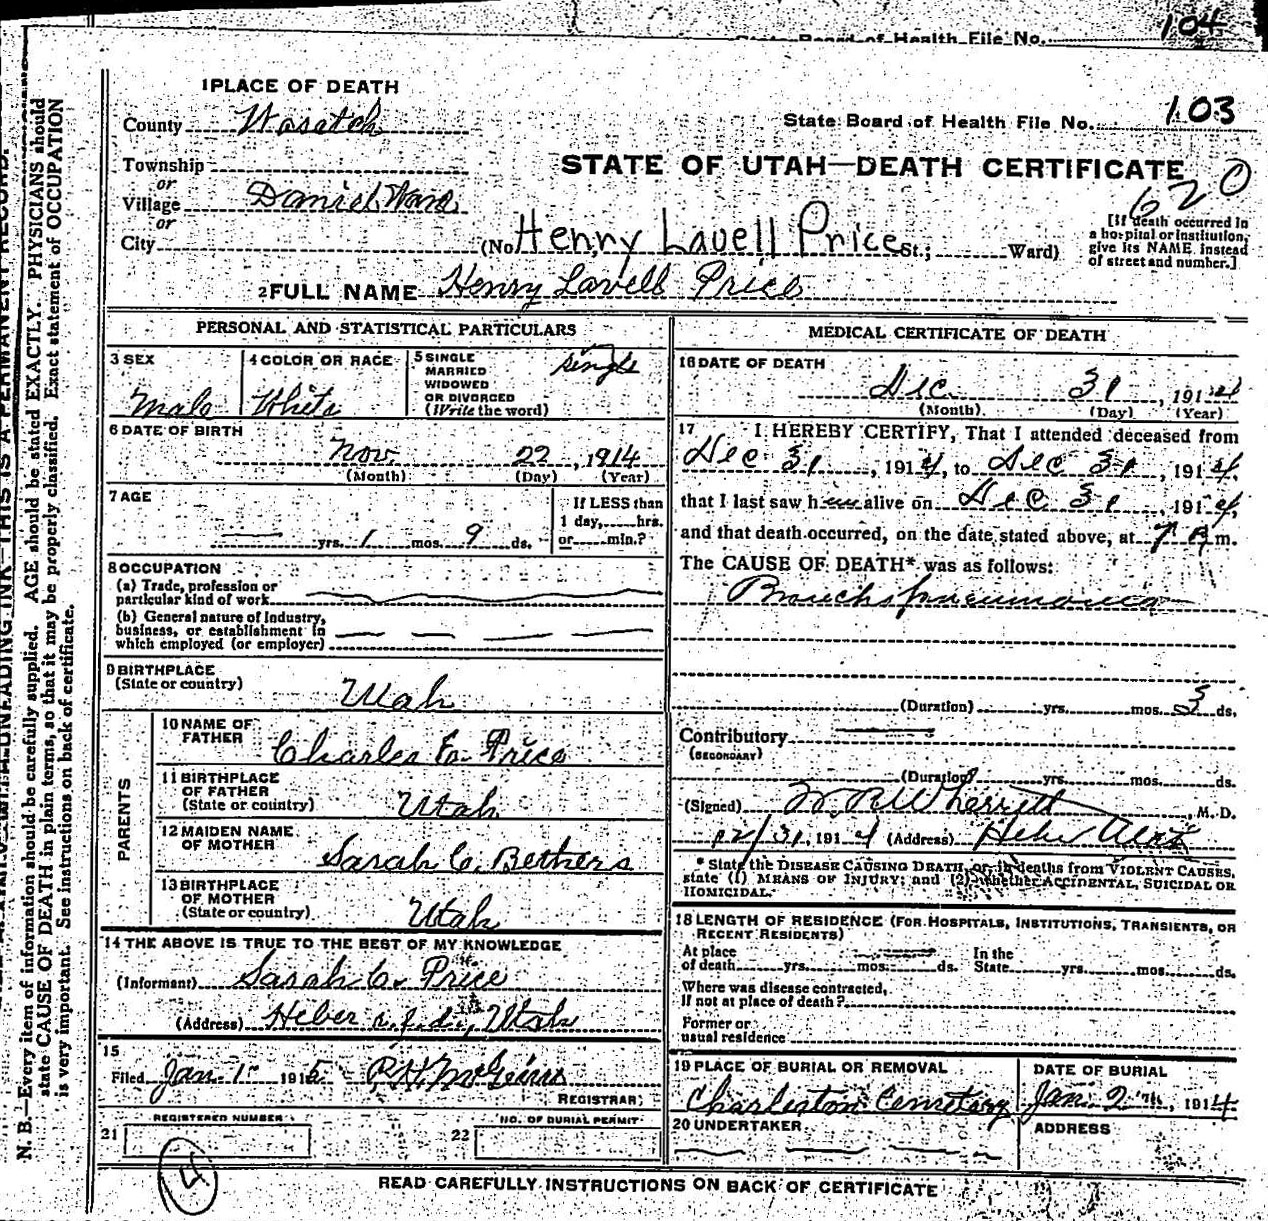 State Board of Health File No. 104
1 PLACE OF DEATH
County Wasatch
State Board of Health File No. 103
Township
or
Village Daniel Ward
or
City
STATE OF UTAH—DEATH CERTIFICATE
620
(No. Henny Lavell Price St.; Ward)
[If death occurred in
a hospital or institution,
give its NAME instead
of street and number.]
2 FULL NAME Henry Lavell Price
PERSONAL AND STATISTICAL PARTICULARS
3 SEX
Male
4 COLOR OR RACE
White
5 SINGLE
MARRIED
WIDOWED
OR DIVORCED
(Write the word)
single
6 DATE OF BIRTH
Nov 22, 1914
(Month) (Day) (Year)
7 AGE
yrs. 1 mos. 9 ds.
If LESS than
1 day, hrs.
or min.?
8 OCCUPATION
(a) Trade, profession or
particular kind of work
(b) General nature of Industry,
business, or establishment in
which employed (or employer)
9 BIRTHPLACE
(State or country)
Utah
PARENTS
10 NAME OF
FATHER
Charles E. Price
11 BIRTHPLACE
OF FATHER
(State or country)
Utah
12 MAIDEN NAME
OF MOTHER
Sarah C. Bethers
13 BIRTHPLACE
OF MOTHER
(State or country)
Utah
14 THE ABOVE IS TRUE TO THE BEST OF MY KNOWLEDGE
(Informant) Sarah C. Price
(Address) Heber r.f.d., Utah
15
Filed Jan. 1 1915
REGISTRAR
REGISTERED NUMBER
21
NO. OF BURIAL PERMIT
22
MEDICAL CERTIFICATE OF DEATH
16 DATE OF DEATH
Dec. 31, 1914
(Month) (Day) (Year)
17 I HEREBY CERTIFY, That I attended deceased from
Dec 31, 1914, to Dec 31, 1914,
that I last saw h alive on Dec 31, 1914,
and that death occurred, on the date stated above, at 7 A m.
The CAUSE OF DEATH* was as follows:
Bronchopneumonia
(Duration) yrs. mos. 3 ds.
Contributory
(SECONDARY)
(Duration) yrs. mos. ds.
(Signed) W R Wherritt, M. D.
12/31, 1914 (Address) Heber Utah
* State the DISEASE CAUSING DEATH, or, in deaths from VIOLENT CAUSES,
state (1) MEANS OF INJURY; and (2) whether ACCIDENTAL, SUICIDAL OR
HOMICIDAL.
18 LENGTH OF RESIDENCE (FOR HOSPITALS, INSTITUTIONS, TRANSIENTS, OR
RECENT RESIDENTS)
At place
of death yrs. mos. ds.
In the
State yrs. mos. ds.
Where was disease contracted,
If not at place of death?
Former or
usual residence
19 PLACE OF BURIAL OR REMOVAL
Charleston Cemetery
DATE OF BURIAL
Jan. 2, 1914
20 UNDERTAKER
ADDRESS
14
READ CAREFULLY INSTRUCTIONS ON BACK OF CERTIFICATE
THIS IS A PERMANENT RECORD.
N. B.—Every item of information should be carefully supplied. AGE should be stated EXACTLY. PHYSICIANS should
state CAUSE OF DEATH in plain terms, so that it may be properly classified. Exact statement of OCCUPATION
is very important. See instructions on back of certificate.